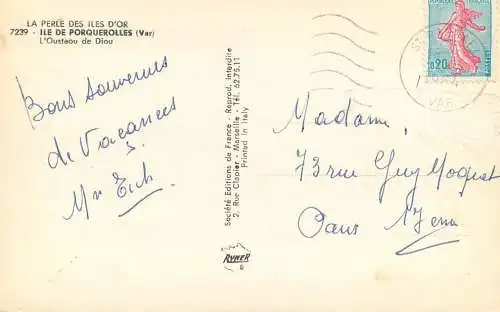 LA PERLE DES ILES D'OR
7239 - ILE DE PORQUEROLLES (Var)
L'Oustaou de Diou
Bons souvenirs
de Vacances
Mr
Société Editions de France - Reprod. interdite
2, Rue Clapier - Marseille - Tél. 62.75.11
Printed in Italy
RYNER
0,20
POSTES
VAR
Madame,
73 rue Guy Moquet
Paris 17eme